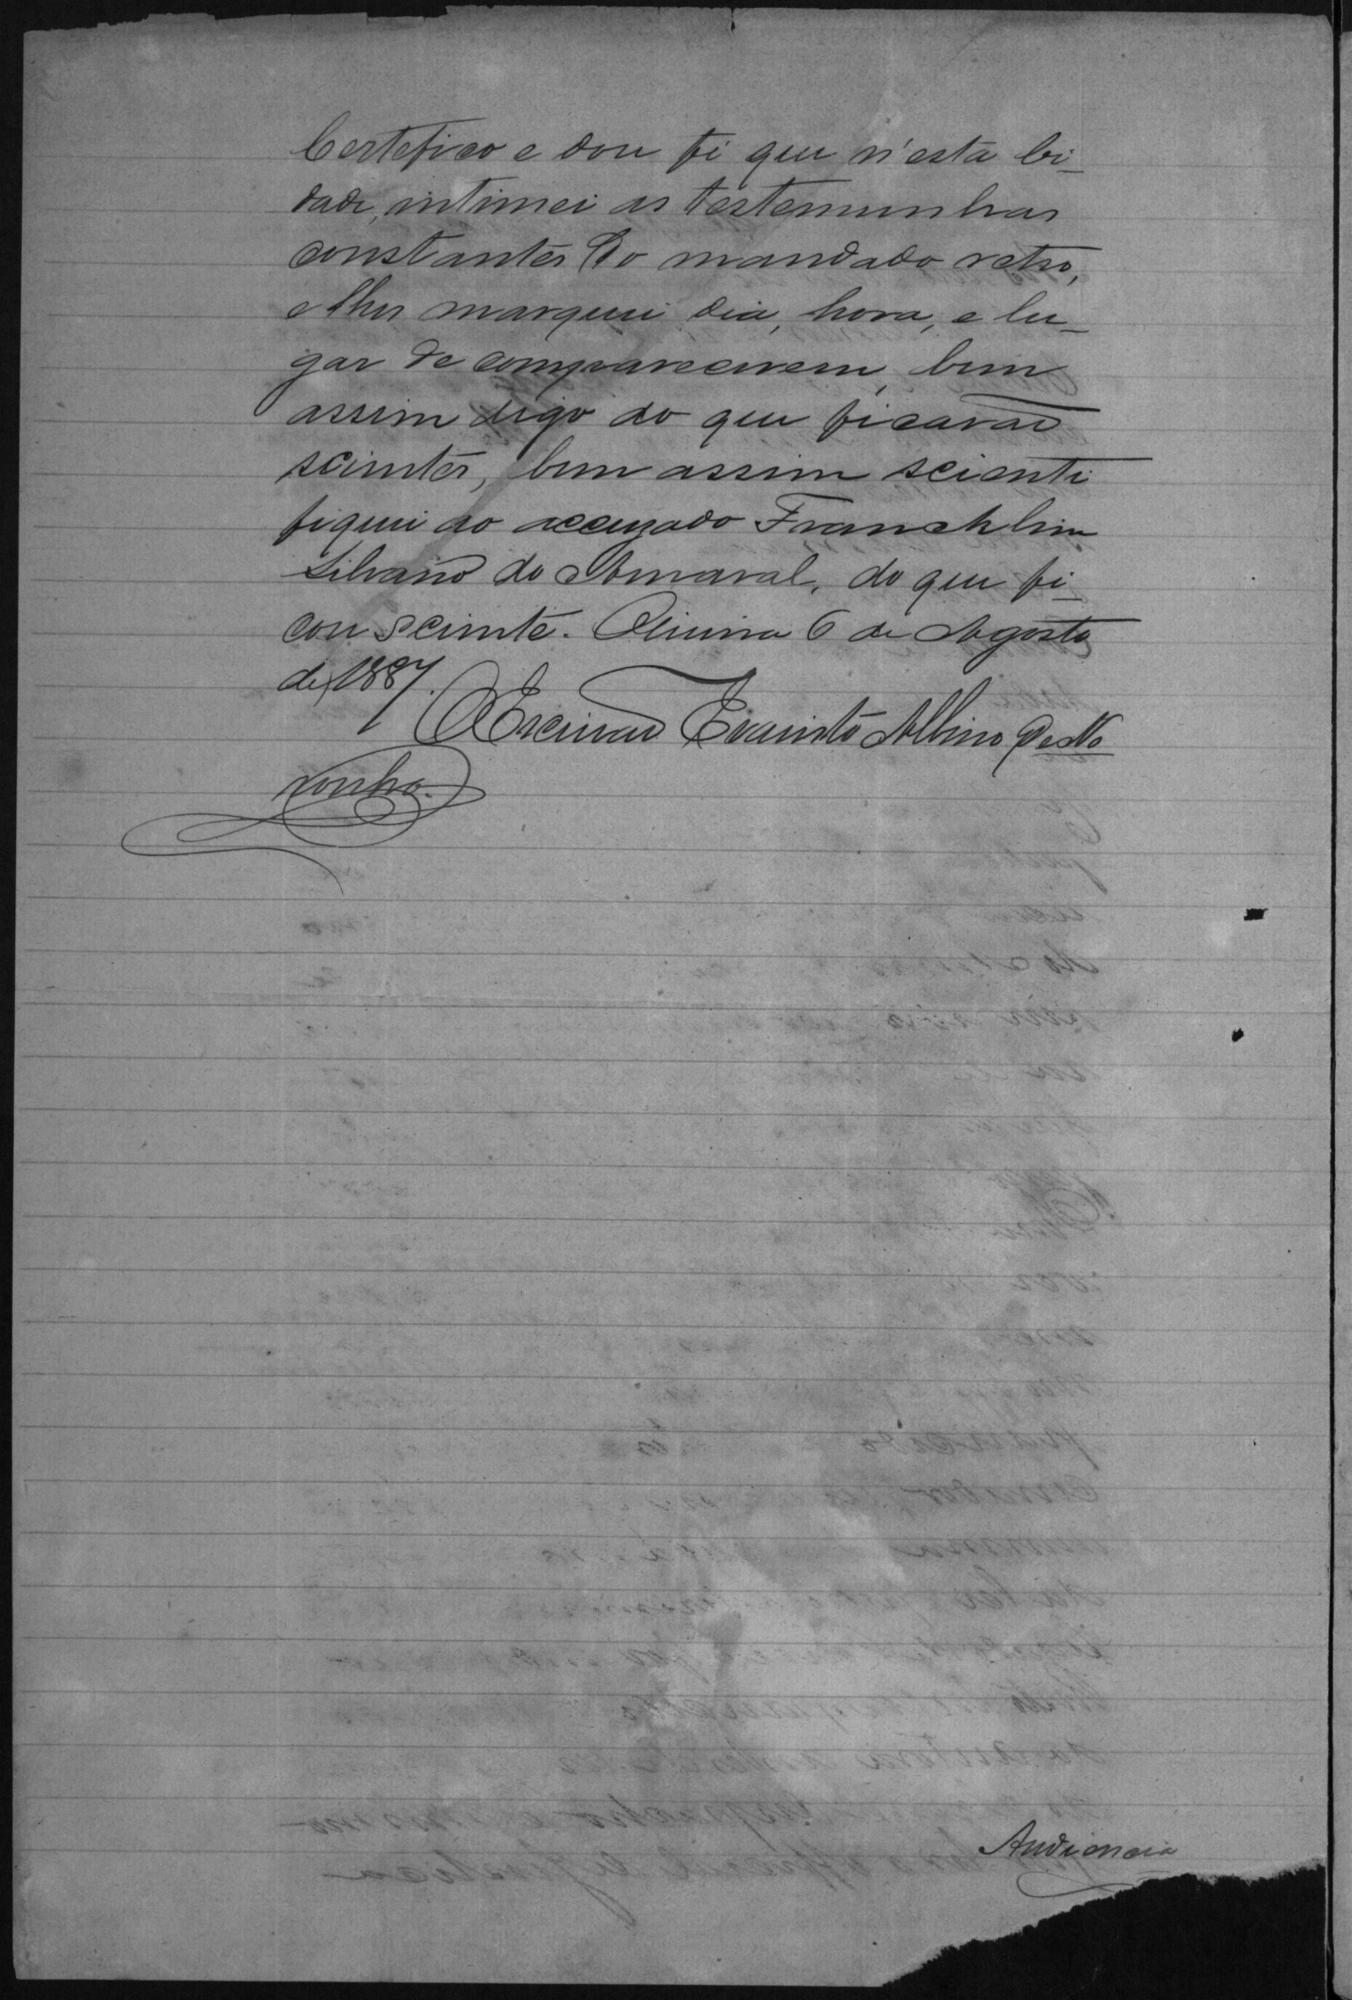 Certefico e dou fé que n'esta Ci-
dade, intimei as testemunhas
constantes do mandado retro,
e lhes marquei dia, hora, e lu-
gar de comparecerem, bem
assim digo do que ficarão
scientes, bem assim scienti
fiquei ao accuzado Francklim
Silvano do Amaral, do que fi-
cou sciente.
6 de Agosto
de 1887.
O Escrivão Evaristo Albino de No
ronha.
Audiencia